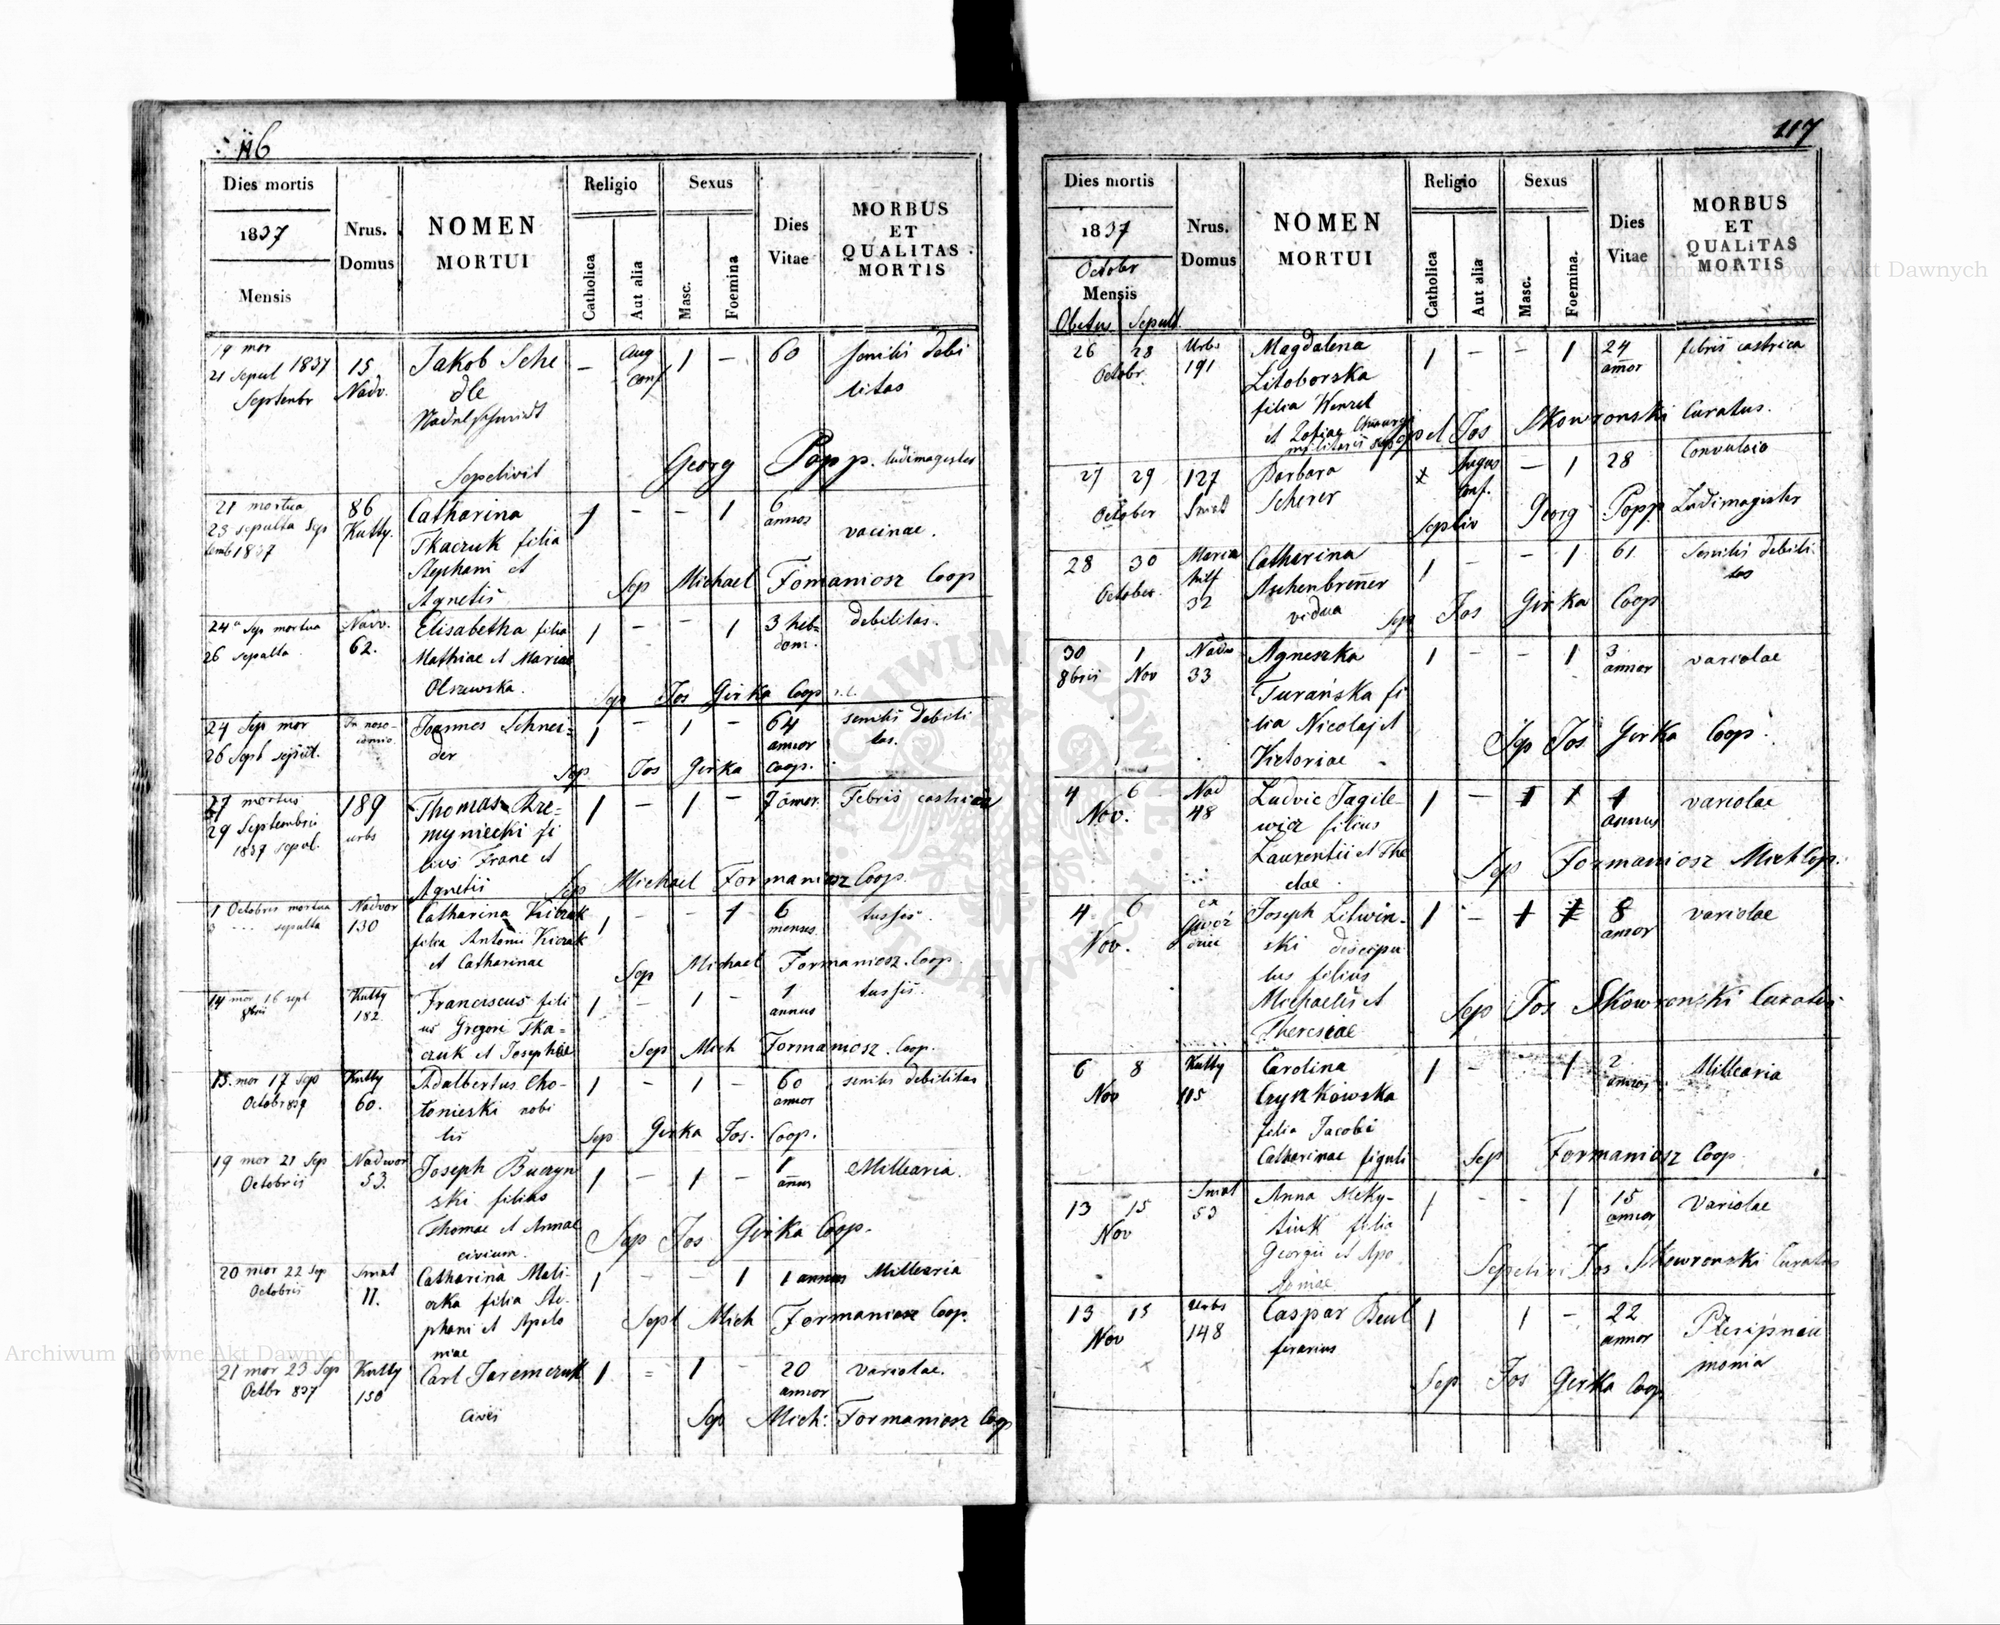 116
Dies mortis
1837
Mensis
Nrus.
Domus
NOMEN
MORTUI
Religio
Catholica
Aut alia
Sexus
Masc.
Foemina
Dies
Vitae
MORBUS
ET
QUALITAS
MORTIS
19 mor
21 Sepul 1837
Septembr
15
Nadv.
Jakob Sche
dle
Nadelschmidt
– Aug
conf
1 –
60
senilis debi
litas
Sepelivit Georg Popp. Ludimagister
21 mortua
23 sepulta Sep
temb 1837
86
Kutty.
Catharina
Tkaczuk filia
Stephani et
Agnetis
1 – – 1
6
annos
vacinae.
Sep Michael Fomaniosz Coop
24a Sep mortua
26 sepulta
Nadv.
62.
Elisabetha filia
Mathiae et Mariae
Olszewska.
1 – – 1
3 heb=
dom.
debilitas.
Sep Jos Girka Coop
24 Sep mor
26 Sept sepult.
In noso-
comio
Joannes Schnei=
der
1 – 1 –
64
annor
senilis debili
tas.
Sep Jos Girka Coop.
27 mortus
29 Septembris
1837 sepul.
189
urbs
Thomas Krze=
myniecki fi
lius Franc et
Agnetis
1 – 1 –
Febris castrica
Sep Michael Formaniosz Coop.
1 Octobris mortua
3 ... sepulta
Nadvor
130
Catharina Kiczak
filia Antonii Kiczak
et Catharinae
1 – – 1
6
menses
tussis.
Sep Michael Formaniosz Coop.
14 mor 16 sept
8bris
Kutty
182
Franciscus fili
us Gregori Tka=
czuk et Josephae
1 – 1 –
1
annus
tussis.
Sep Mich Formaniosz. Coop.
15. mor 17 Sep
Octobr 839
Kutty
60.
Adalbertus Cho-
łonieski nobi
lis
1 – 1 –
60
annor
senilis debilitas
Sep Girka Jos. Coop.
19 mor 21 Sep
Octobris
Nadwor
53.
Joseph Buczyn
ski filius
Thomae et Annae
civium.
1 – 1 –
1
annus
Millearia.
Sep Jos Girka Coop.
20 mor 22 Sep
Octobris
Smat
11.
Catharina Mali-
ozka filia Ste-
phani et Apolo
niae
1 – – 1
1 annus
Millearia
Sept Mich Formaniosz Coop.
21 mor 23 Sep
Octbr 837
Kutty
150
Carl Jaremczuk
Civis
1 = 1 –
20
annor
variolae.
Sep Mich: Formaniosz Coop
117
Dies mortis
1837
October
Mensis
Obitus Sepult.
Nrus.
Domus
NOMEN
MORTUI
Religio
Catholica
Aut alia
Sexus
Masc.
Foemina.
Dies
Vitae
MORBUS
ET
QUALITAS
MORTIS
26 28
Octobr.
Urbs
191
Magdalena
Litoborska
filia Wenzel
et Zofiae Chirurgi
militaris
1 – – 1
24
annor
febris castrica
Sepel Jos Skowronski Curatus.
27 29
October
127
Smat
Barbara
Scherer
x Augus
conf.
– 1
28
Convulsio
Sepeliv Georg Popp Ludimagister
28 30
October
Maria
hilf
32
Catharina
Aschenbrenner
vidua
1 – – 1
61
Senilis debili
tas
Sep Jos Girka Coop
30 1
8bris Nov
Nadw
33
Agneszka
Turańska fi
lia Nicolaj et
Victoriae
1 – – 1
3
annor
variolae
Sep Jos Girka Coop.
4 6
Nov.
Nad
48
Ludvic Jagile-
wicz filius
Laurentii et The
clae
1 – 1 1
1
annus
variolae
Sep Formaniosz Mich Cop.
4 6
Nov.
ex
Gwoź
dziec
Joseph Litwin-
ski discipu
lus filius
Michaelis et
Theresiae
1 – 1 1
8
annor
variolae
Sep Jos Skowronski Curatus
6 8
Nov
Kutty
115
Carolina
Czyrkowska
filia Jacobi
Catharinae figuli
1 – – 1
2
annos
Millearia
Sep Formaniosz Coop
13 15
Nov
Smat
53
Anna Meky-
tiuk filia
Georgii et Apo
loniae
1 – – 1
15
annor
Variolae
Sepelivi Jos Skowronski Curatus
13 15
Nov
urbs
148
Caspar Beul
ferarius
1 1 –
22
annor
Sep Jos Girka Coop
Archiwum Główne Akt Dawnych
Archiwum Główne Akt Dawnych